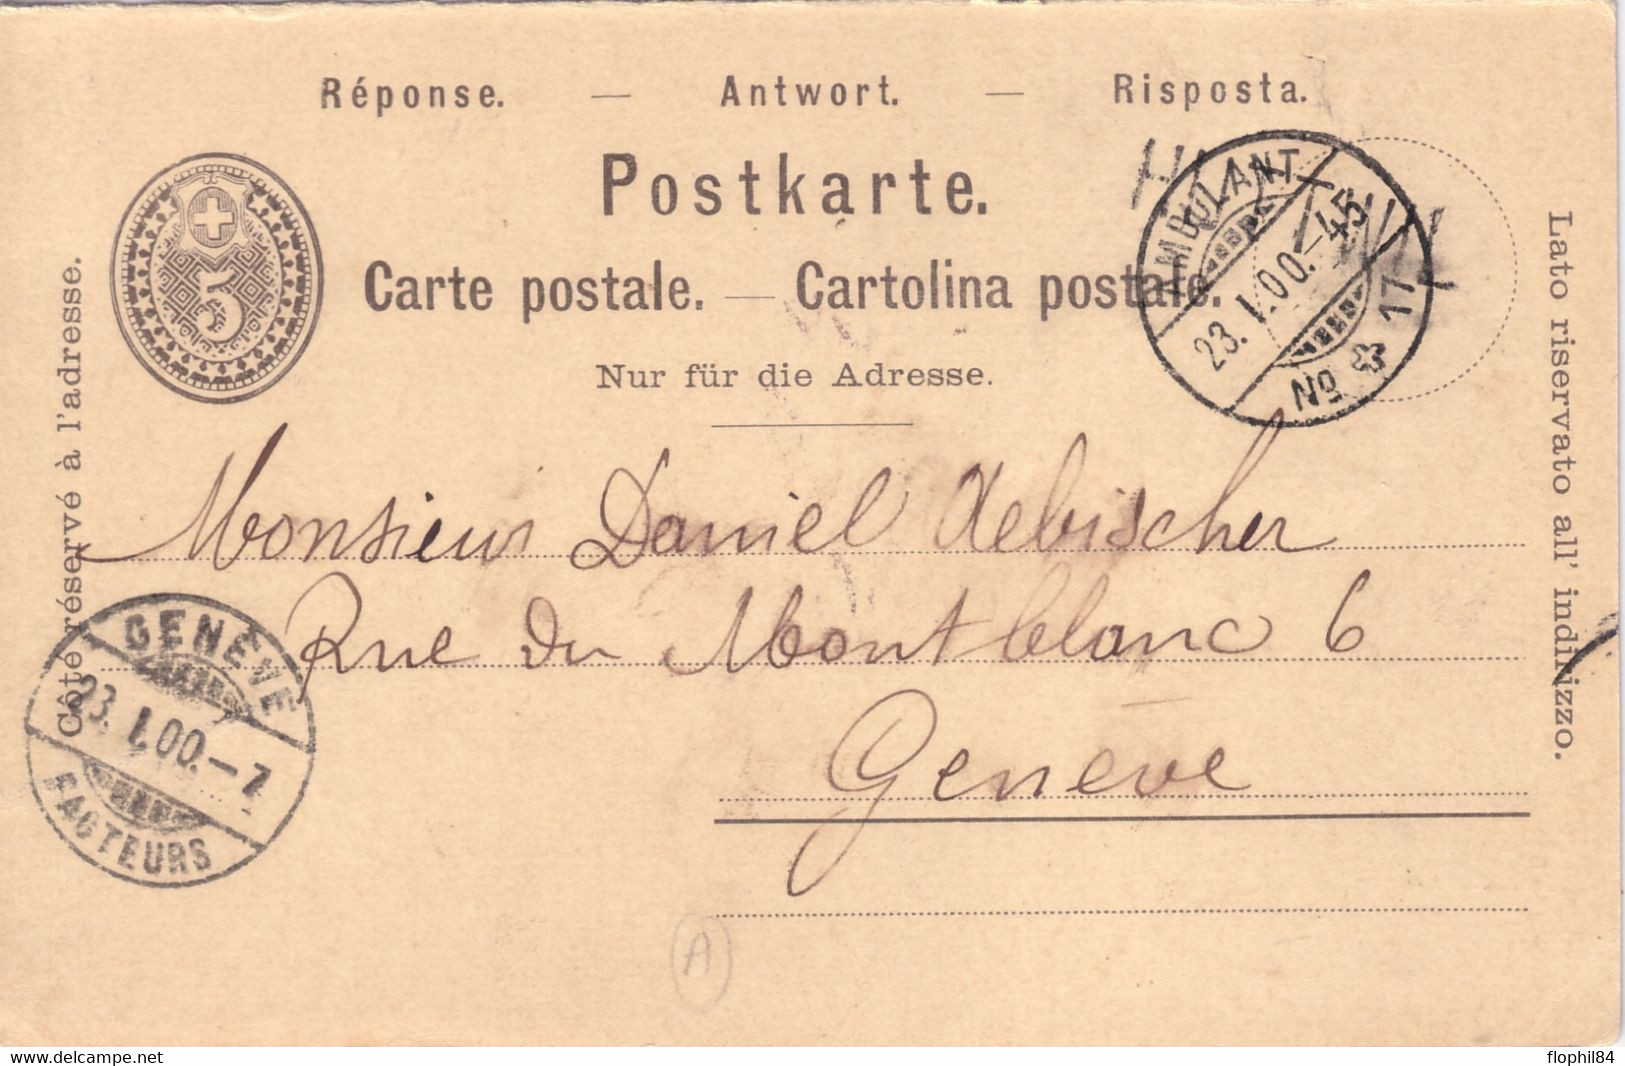 Réponse. — Antwort. — Risposta.
Postkarte.
Carte postale. — Cartolina postale.
Nur für die Adresse.
5
AMBULANT
23. I. 00.–45
No 17
Côté réservé à l'adresse.
Lato riservato all' indirizzo.
Monsieur Daniel Aebischer
Rue du Mont blanc 6
Genève
GENÈVE
23. I. 00.–7
FACTEURS
A
flophil84